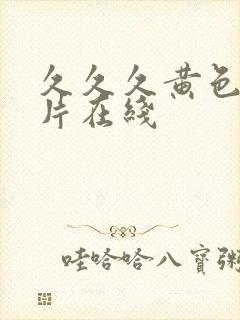 久久久黄色
片在綫
哇哈哈八寳粥